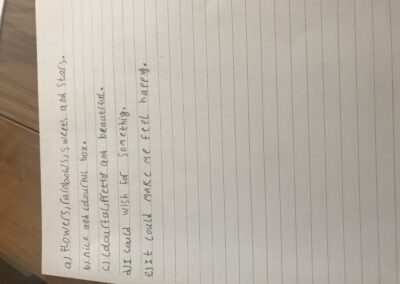 a) flowers, rainbows, sweets and stars.
b) nice and colourful box.
c) colourful, pretty and beautiful.
d) I could wish for somethig.
e) It could make me feel happy.